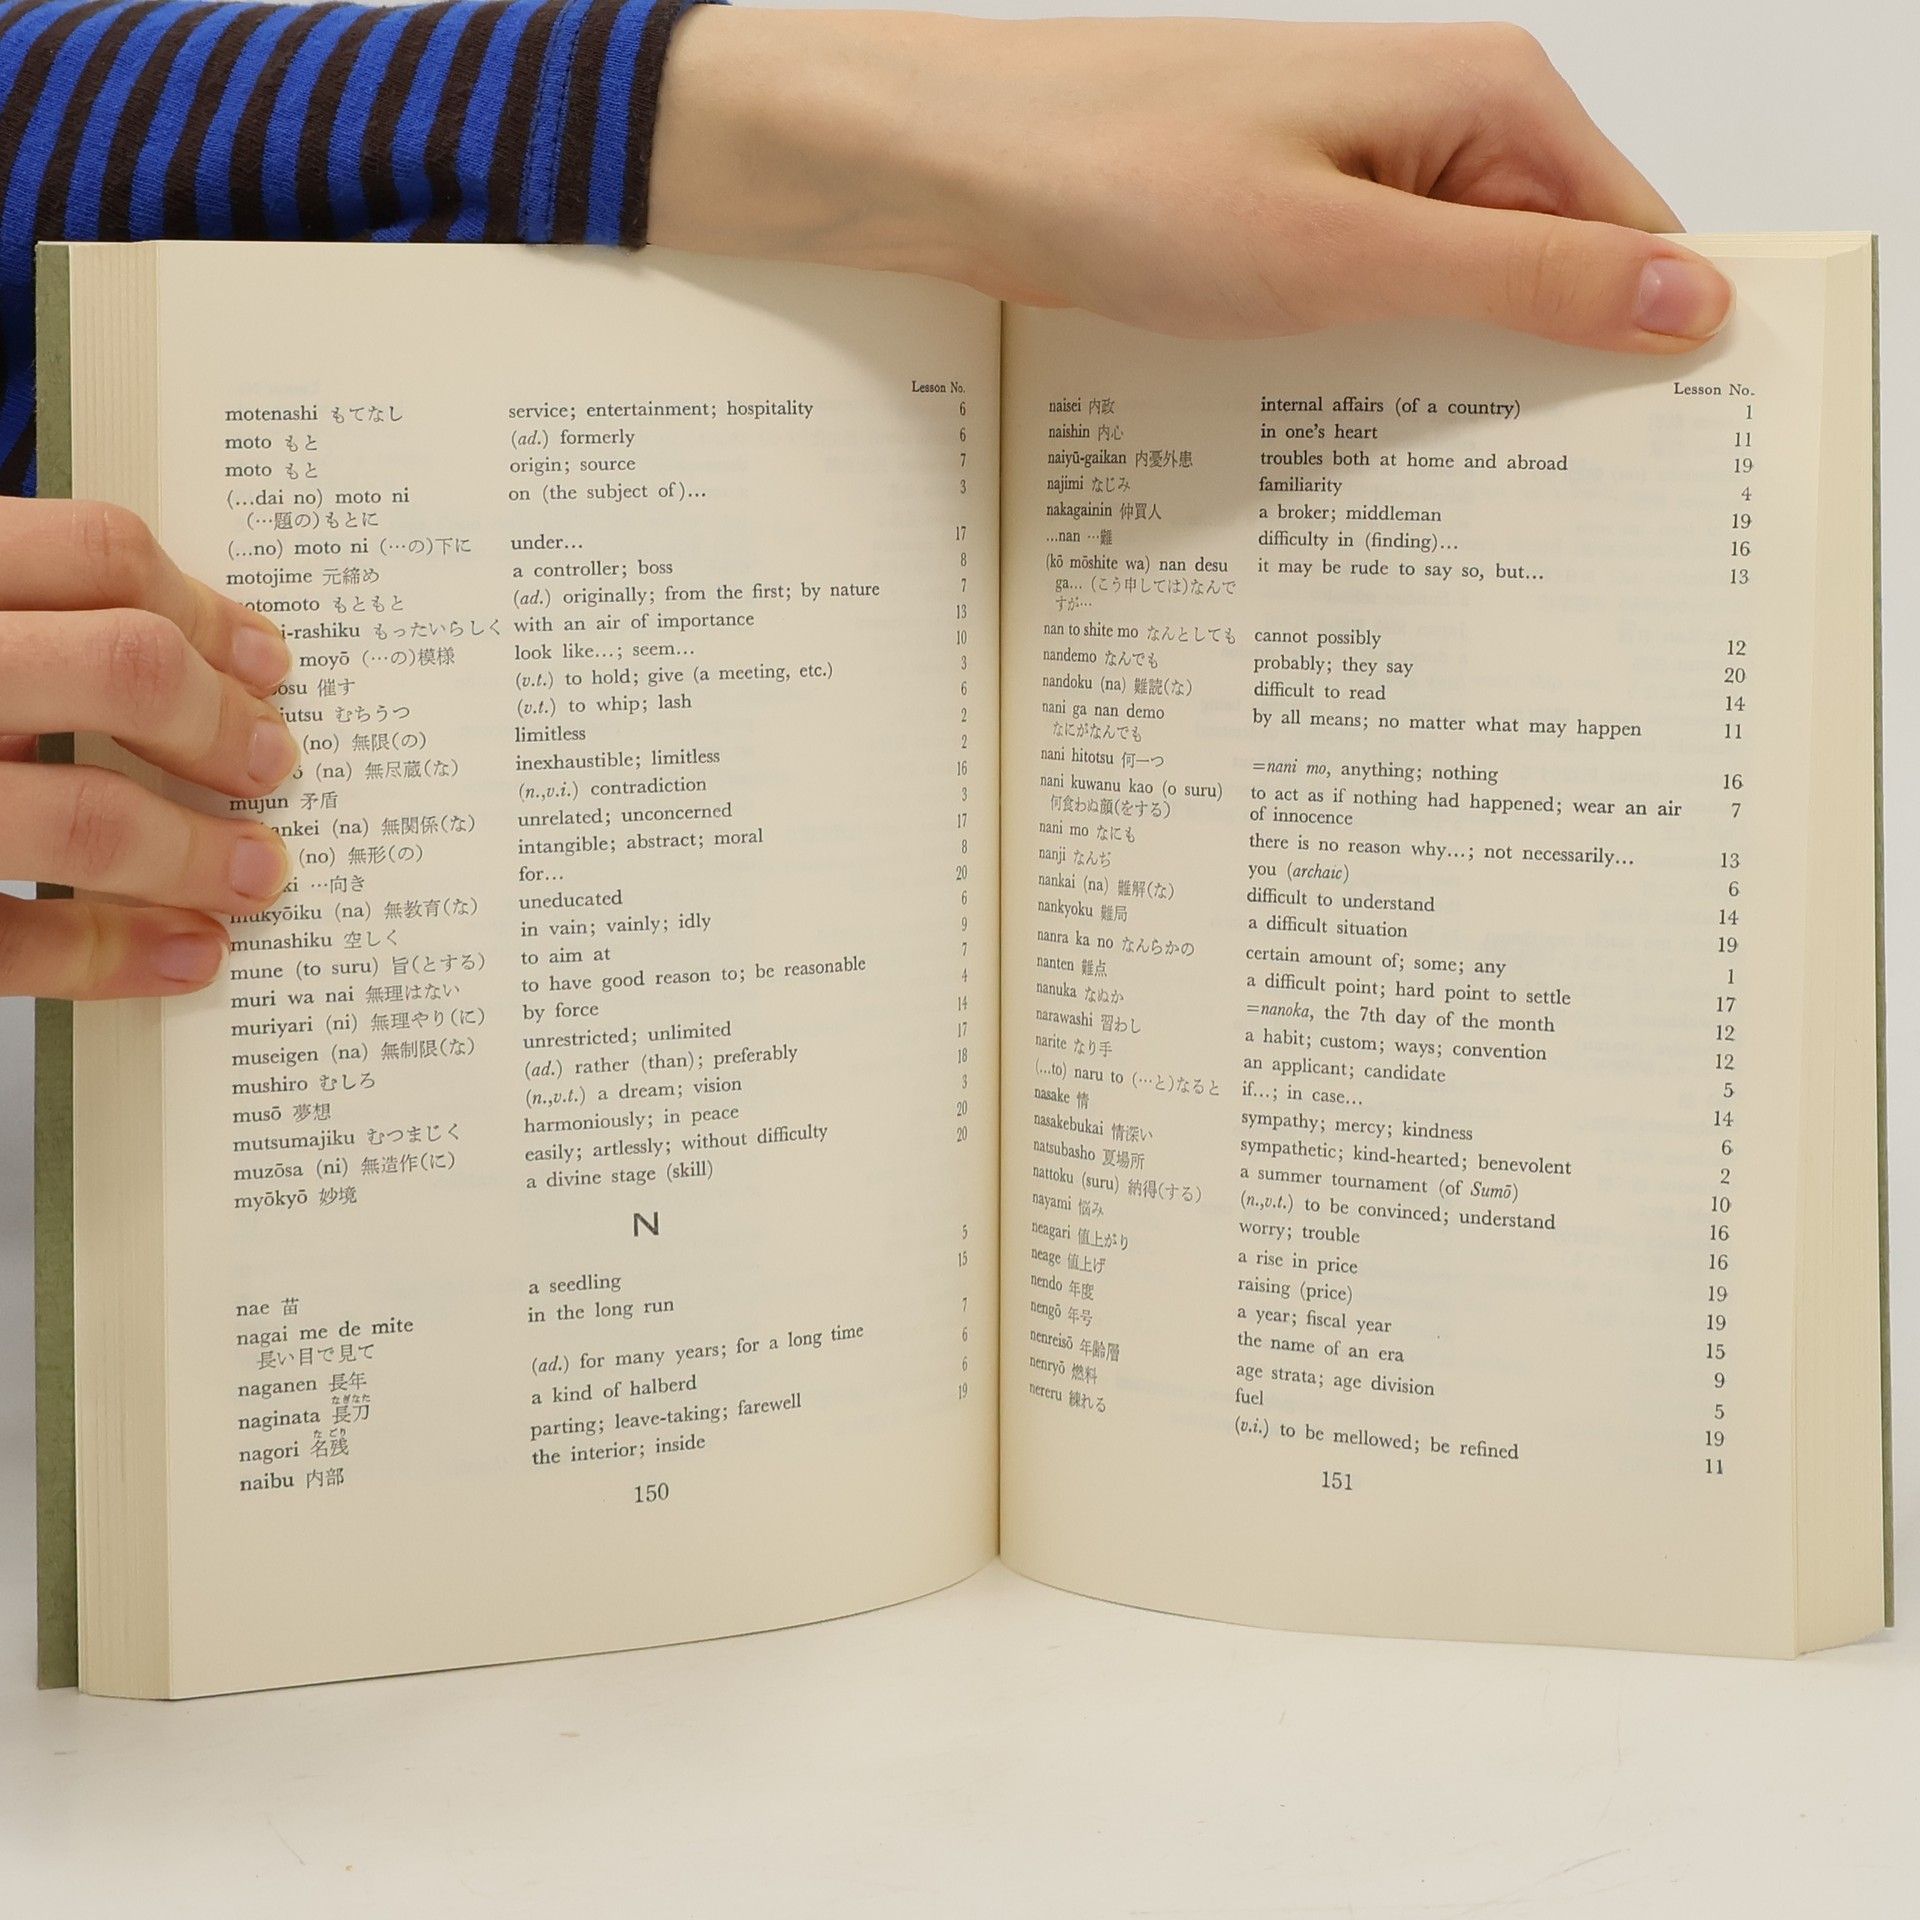 Lesson No.
motenashi もてなし service; entertainment; hospitality 6
moto もと (ad.) formerly 6
moto もと origin; source 7
(...dai no) moto ni on (the subject of)... 3
(…題の)もとに
(...no) moto ni (…の)下に under... 17
motojime 元締め a controller; boss 8
もともと (ad.) originally; from the first; by nature 7
i-rashiku もったいらしく with an air of importance 13
moyō (…の)模様 look like...; seem... 10
催す (v.t.) to hold; give (a meeting, etc.) 3
むちうつ (v.t.) to whip; lash 6
(no) 無限(の) limitless 2
(na) 無尽蔵(な) inexhaustible; limitless 2
mujun 矛盾 (n.,v.i.) contradiction 16
ankei (na) 無関係(な) unrelated; unconcerned 3
(no) 無形(の) intangible; abstract; moral 17
…向き for... 8
mukyōiku (na) 無教育(な) uneducated 20
munashiku 空しく in vain; vainly; idly 6
mune (to suru) 旨(とする) to aim at 9
muri wa nai 無理はない to have good reason to; be reasonable 7
muriyari (ni) 無理やり(に) by force 4
museigen (na) 無制限(な) unrestricted; unlimited 14
mushiro むしろ (ad.) rather (than); preferably 17
musō 夢想 (n.,v.t.) a dream; vision 18
mutsumajiku むつまじく harmoniously; in peace 3
muzōsa (ni) 無造作(に) easily; artlessly; without difficulty 20
myōkyō 妙境 a divine stage (skill) 20
N
nae 苗 a seedling 5
nagai me de mite in the long run 15
長い目で見て
naganen 長年 (ad.) for many years; for a long time 7
なぎなた
naginata 長刀 a kind of halberd 6
なごり
nagori 名残 parting; leave-taking; farewell 6
naibu 内部 the interior; inside 19
150
Lesson No.
naisei 内政 internal affairs (of a country) 1
naishin 内心 in one's heart 11
naiyū-gaikan 内憂外患 troubles both at home and abroad 19
najimi なじみ familiarity 4
nakagainin 仲買人 a broker; middleman 19
...nan …難 difficulty in (finding)... 16
(kō mōshite wa) nan desu it may be rude to say so, but... 13
ga... (こう申しては)なんで
すが…
nan to shite mo なんとしても cannot possibly 12
nandemo なんでも probably; they say 20
nandoku (na) 難読(な) difficult to read 14
nani ga nan demo by all means; no matter what may happen 11
なにがなんでも
nani hitotsu 何一つ =nani mo, anything; nothing 16
nani kuwanu kao (o suru) to act as if nothing had happened; wear an air 7
何食わぬ顔(をする) of innocence
nani mo なにも there is no reason why...; not necessarily... 13
nanji なんぢ you (archaic) 6
nankai (na) 難解(な) difficult to understand 14
nankyoku 難局 a difficult situation 19
nanra ka no なんらかの certain amount of; some; any 1
nanten 難点 a difficult point; hard point to settle 17
nanuka なぬか =nanoka, the 7th day of the month 12
narawashi 習わし a habit; custom; ways; convention 12
narite なり手 an applicant; candidate 5
(...to) naru to (…と)なると if...; in case... 14
nasake 情 sympathy; mercy; kindness 6
nasakebukai 情深い sympathetic; kind-hearted; benevolent 2
natsubasho 夏場所 a summer tournament (of Sumō) 10
nattoku (suru) 納得(する) (n.,v.t.) to be convinced; understand 16
nayami 悩み worry; trouble 16
neagari 値上がり a rise in price 19
neage 値上げ raising (price) 19
nendo 年度 a year; fiscal year 15
nengō 年号 the name of an era 9
nenreisō 年齢層 age strata; age division 5
nenryō 燃料 fuel 19
nereru 練れる (v.i.) to be mellowed; be refined 11
151